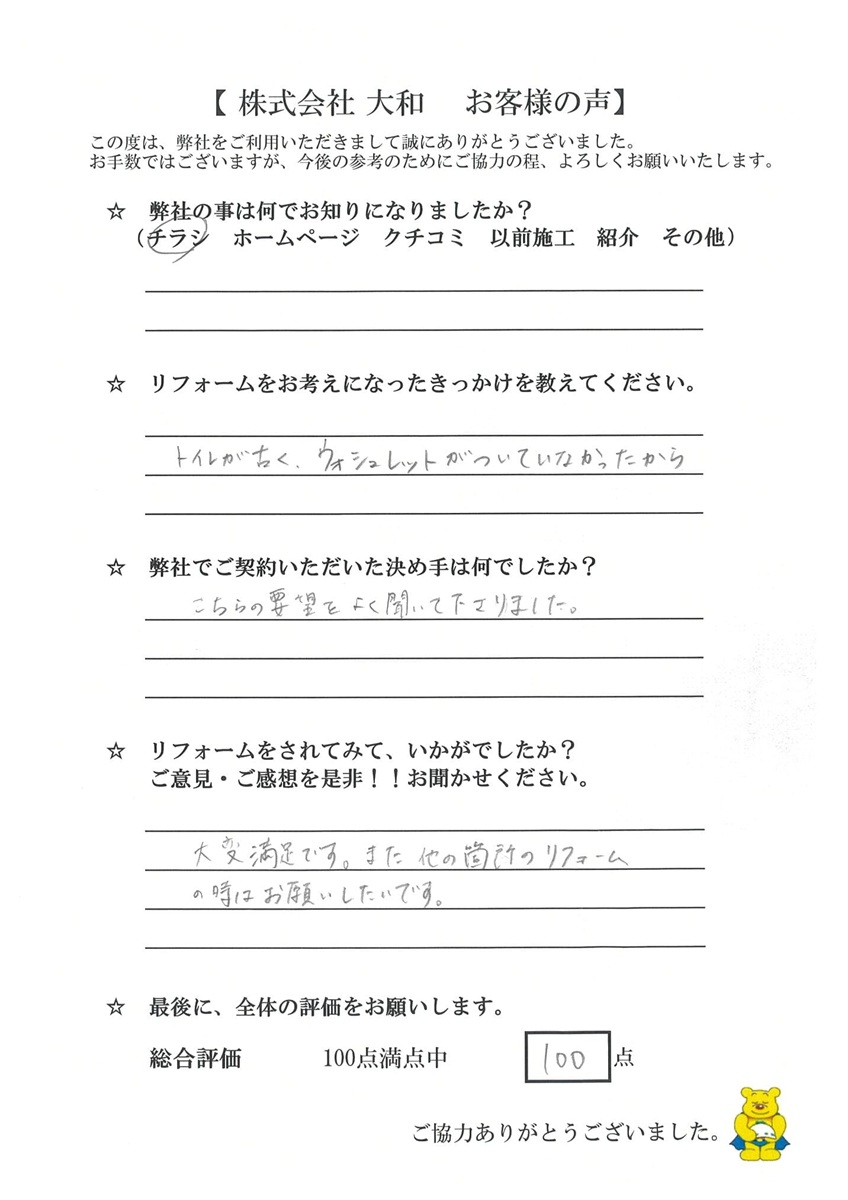 【 株式会社 大和　お客様の声】
この度は、弊社をご利用いただきまして誠にありがとうございました。
お手数ではございますが、今後の参考のためにご協力の程、よろしくお願いいたします。
☆　弊社の事は何でお知りになりましたか？
（チラシ　ホームページ　クチコミ　以前施工　紹介　その他）
☆　リフォームをお考えになったきっかけを教えてください。
トイレが古く、ウォシュレットがついていなかったから
☆　弊社でご契約いただいた決め手は何でしたか？
こちらの要望をよく聞いて下さりました。
☆　リフォームをされてみて、いかがでしたか？
ご意見・ご感想を是非！！お聞かせください。
大変満足です。また他の箇所のリフォーム
の時はお願いしたいです。
☆　最後に、全体の評価をお願いします。
総合評価　100点満点中　100 点
ご協力ありがとうございました。